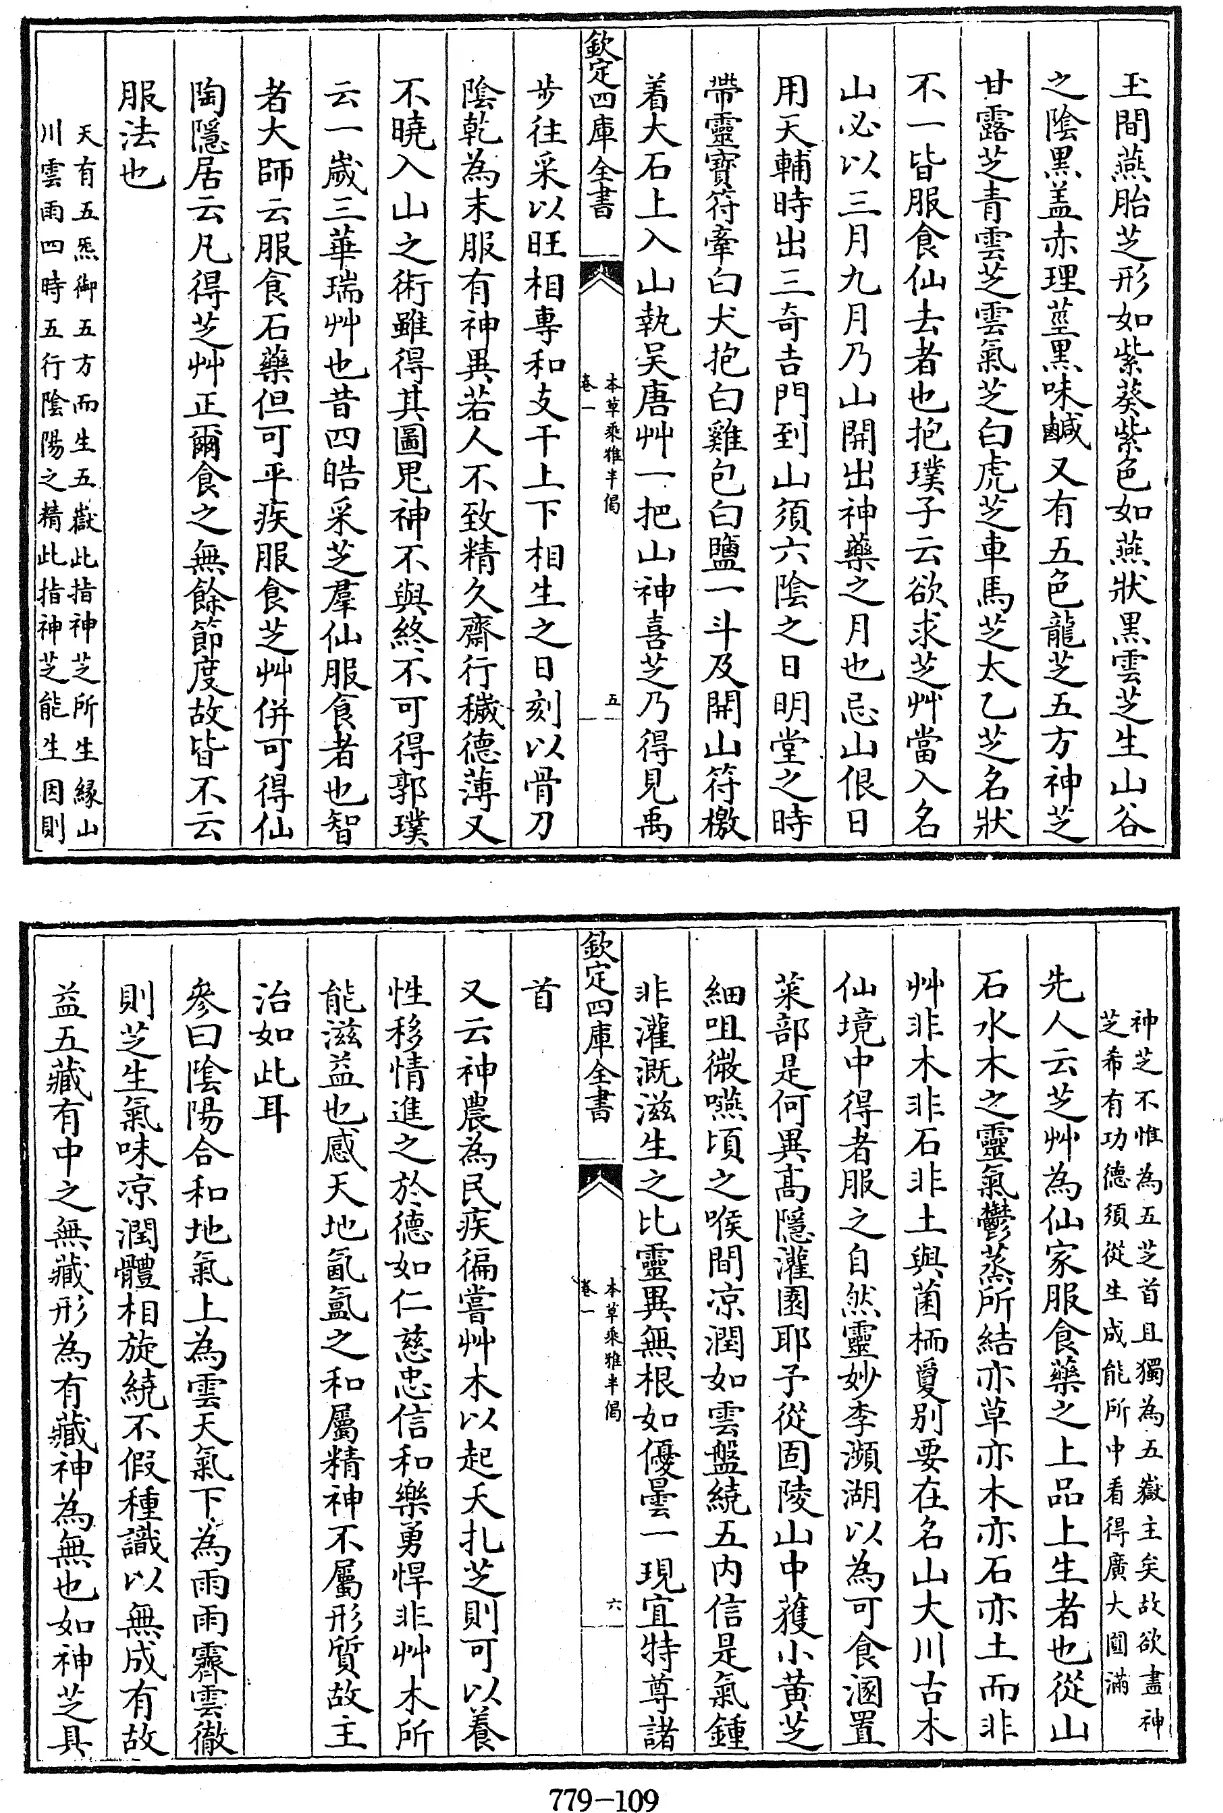 玉間燕胎芝形如紫葵紫色如燕狀黑雲芝生山谷
之陰黑盖赤理莖黑味鹹又有五色龍芝五方神芝
甘露芝青雲芝雲氣芝白虎芝車馬芝太乙芝名狀
不一皆服食仙去者也抱璞子云欲求芝艸當入名
山必以三月九月乃山開出神藥之月也忌山佷日
用天輔時出三奇吉門到山須六陰之日明堂之時
帶靈寶符牽白犬抱白雞包白鹽一斗及開山符檄
着大石上入山執吴唐艸一把山神喜芝乃得見禹
欽定四庫全書
本草乘雅半偈
卷一
五
步往采以旺相專和支干上下相生之日刻以骨刀
陰乾為末服有神異若人不致精久齋行穢德薄又
不曉入山之術雖得其圖鬼神不與終不可得郭璞
云一嵗三華瑞艸也昔四皓采芝羣仙服食者也智
者大師云服食石藥但可平疾服食芝艸併可得仙
陶隱居云凡得芝艸正爾食之無餘節度故皆不云
服法也
天有五炁御五方而生五嶽此指神芝所生緣山
川雲雨四時五行陰陽之精此指神芝能生因則
神芝不惟為五芝首且獨為五嶽主矣故欲盡神
芝希有功德須從生成能所中看得廣大圓滿
先人云芝艸為仙家服食藥之上品上生者也從山
石水木之靈氣鬱蒸所結亦草亦木亦石亦土而非
艸非木非石非土與菌栭夐别要在名山大川古木
仙境中得者服之自然靈妙李瀕湖以為可食溷置
菜部是何異高隱灌園耶予從固陵山中獲小黄芝
細咀微嚥頃之喉間凉潤如雲盤繞五内信是氣鍾
非灌溉滋生之比靈異無根如優曇一現宜特尊諸
欽定四庫全書
本草乘雅半偈
卷一
六
首
又云神農為民疾徧嘗艸木以起夭扎芝則可以養
性移情進之於德如仁慈忠信和樂勇悍非艸木所
能滋益也感天地氤氲之和屬精神不屬形質故主
治如此耳
參曰陰陽合和地氣上為雲天氣下為雨雨霽雲徹
則芝生氣味凉潤體相旋繞不假種識以無成有故
益五藏有中之無藏形為有藏神為無也如神芝具
779-109